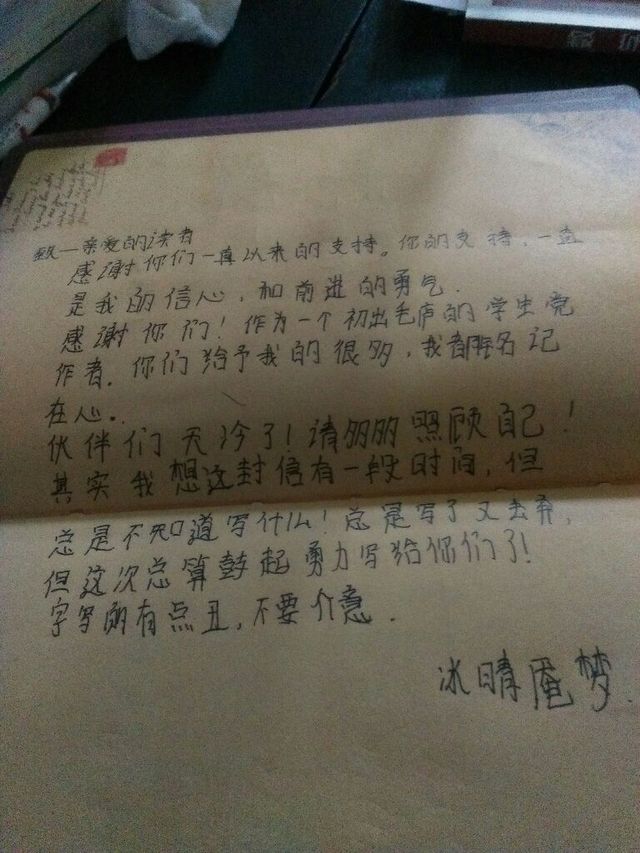 致—亲爱的读者
感谢你们一直以来的支持。你的支持,一直
是我的信心,和前进的勇气.
感谢你们!作为一个初出毛庐的学生党
作者.你们给予我的很多,我都铭记
在心。
伙伴们天冷了!请多多照顾自己!
其实我想这封信有一段时间,但
总是不知道写什么!总是写了又丢弃,
但这次总算鼓起勇力写给你们了!
字写的有点丑,不要介意.
冰晴庵梦.